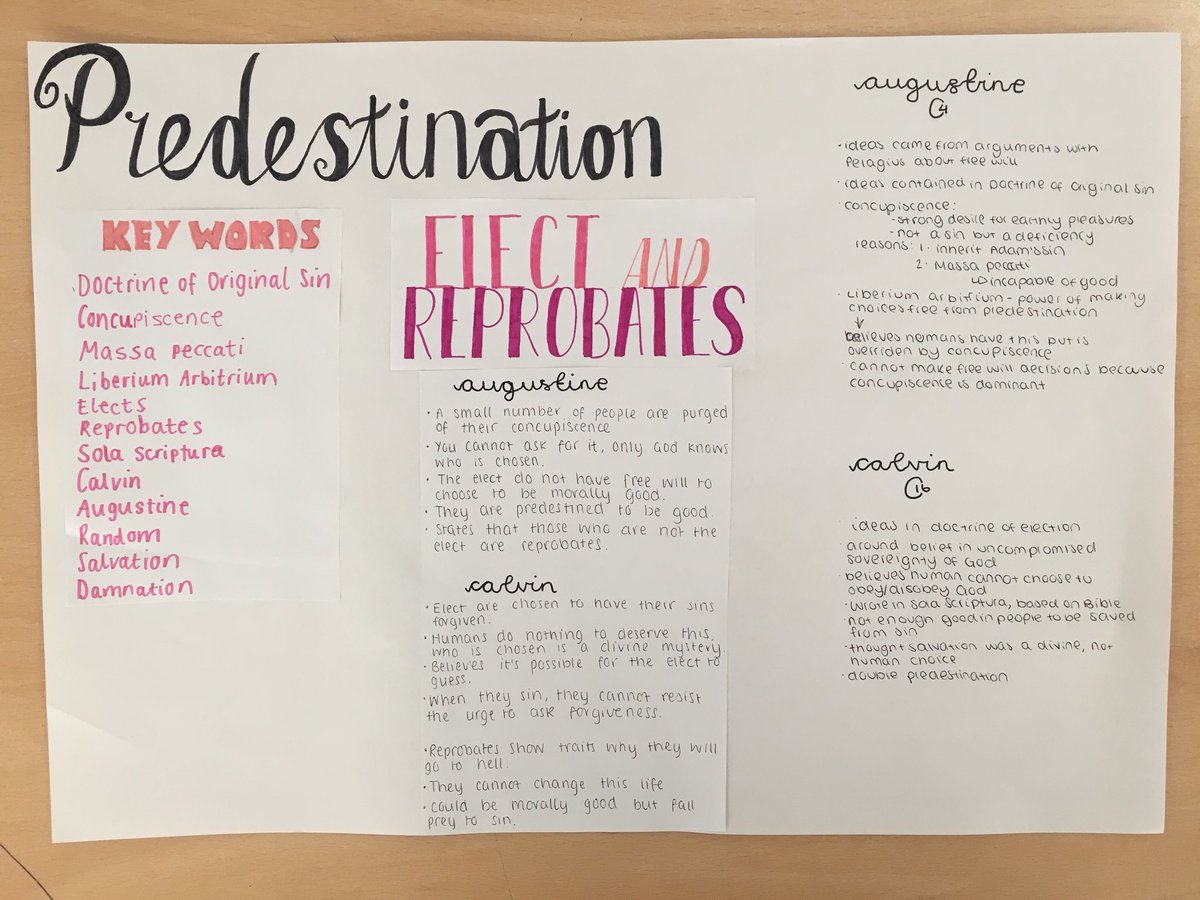 Predestination
KEY WORDS
Doctrine of Original Sin
Concupiscence
Massa peccati
Liberium Arbitrium
Elects
Reprobates
Sola scriptura
Calvin
Augustine
Random
Salvation
Damnation
ELECT AND
REPROBATES
augustine
· A small number of people are purged
of their concupiscence
· You cannot ask for it, only God knows
who is chosen.
· The elect do not have free will to
choose to be morally good.
· They are predestined to be good.
· States that those who are not the
elect are reprobates.
calvin
· Elect are chosen to have their sins
forgiven.
· Humans do nothing to deserve this,
who is chosen is a divine mystery.
· Believes it's possible for the elect to
guess.
· When they sin, they cannot resist
the urge to ask forgiveness.
· Reprobates show traits why they will
go to hell.
· They cannot change this life
· could be morally good but fall
prey to sin.
augustine
C4
· ideas came from arguments with
Pelagius about free will
· ideas contained in Doctrine of original sin
concupiscence:
- strong desire for earthly pleasures
- not a sin but a deficiency
reasons: 1. inherit Adam's sin
2. Massa peccati
↳ incapable of good
· Liberium arbitrium - power of making
choices free from predestination
↓
believes humans have this but is
overriden by concupiscence
· cannot make free will decisions because
concupiscence is dominant
calvin
C16
ideas in doctrine of election
· around belief in uncompromised
sovereignty of God
· believes human cannot choose to
obey/disobey God
· wrote in sola scriptura, based on Bible
· not enough good in people to be saved
from sin
· thought salvation was a divine, not
human choice
· double predestination